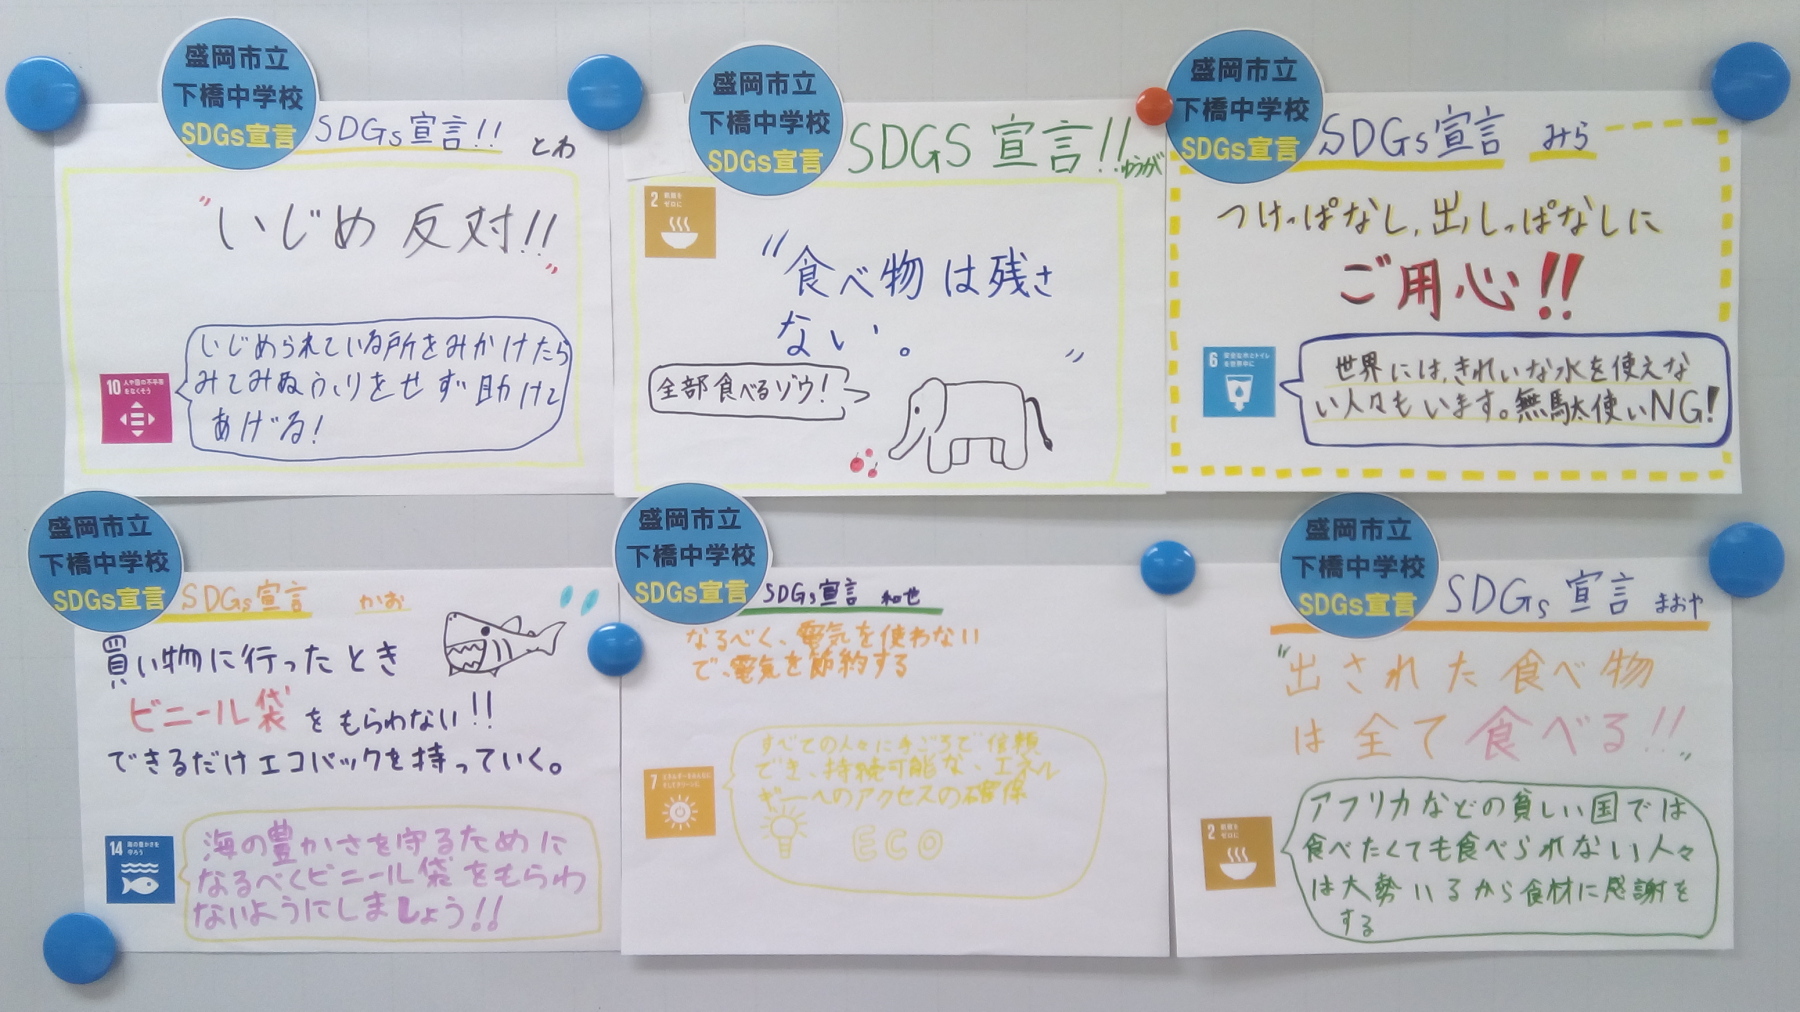 盛岡市立
下橋中学校
SDGs宣言
SDGs宣言!! とわ
"いじめ 反対!!"
10 人や国の不平等
をなくそう
いじめられている所をみかけたら
みてみぬふりをせず助けて
あげる!
盛岡市立
下橋中学校
SDGs宣言
SDGS 宣言!! ゆうが
2 飢餓を
ゼロに
"食べ物は残さ
ない。"
全部食べるゾウ!
盛岡市立
下橋中学校
SDGs宣言
SDGs宣言 みら
つけっぱなし,出しっぱなしに
ご用心!!
6 安全な水とトイレ
を世界中に
世界には,きれいな水を使えな
い人々もいます。無駄使いNG!
盛岡市立
下橋中学校
SDGs宣言
SDGs宣言 かお
買い物に行ったとき
ビニール袋をもらわない!!
できるだけエコバックを持っていく。
14 海の豊かさを
守ろう
海の豊かさを守るために
なるべくビニール袋をもらわ
ないようにしましょう!!
盛岡市立
下橋中学校
SDGs宣言
SDGs宣言 和也
なるべく、電気を使わない
で、電気を節約する
7 エネルギーをみんなに
そしてクリーンに
すべての人々に手ごろで信頼
でき、持続可能な、エネル
ギーへのアクセスの確保
ECO
盛岡市立
下橋中学校
SDGs宣言
SDGs 宣言 まおや
"出された食べ物
は全て食べる!!"
2 飢餓を
ゼロに
アフリカなどの貧しい国では
食べたくても食べられない人々
は大勢いるから食材に感謝を
する